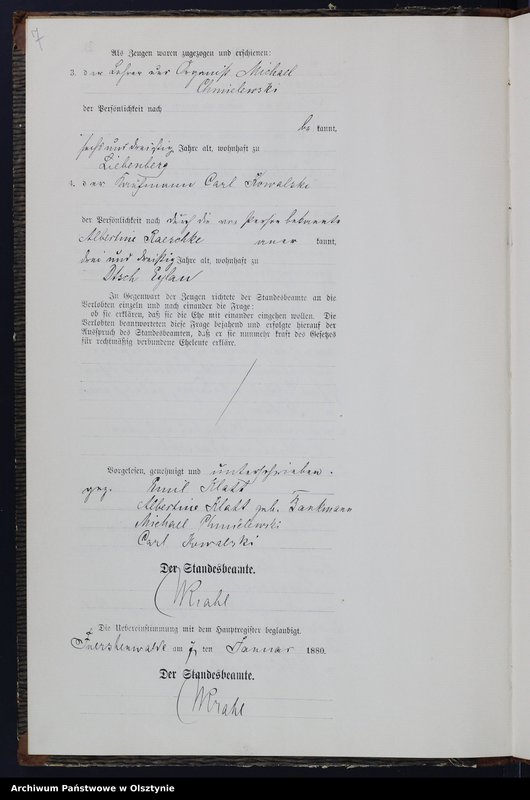 7
Als Zeugen waren zugezogen und erschienen:
3. der Lehrer und Organist Michael
Chmielewski
der Persönlichkeit nach
be kannt,
sechs und dreißig Jahre alt, wohnhaft zu
Liebenberg
4. der Kaufmann Carl Kowalski
der Persönlichkeit nach durch die von Person bekannte
Albertine aner kannt,
drei und dreißig Jahre alt, wohnhaft zu
Dtsch Eylau
In Gegenwart der Zeugen richtete der Standesbeamte an die
Verlobten einzeln und nach einander die Frage:
ob sie erklären, daß sie die Ehe mit einander eingehen wollen. Die
Verlobten beantworteten diese Frage bejahend und erfolgte hierauf der
Ausspruch des Standesbeamten, daß er sie nunmehr kraft des Gesetzes
für rechtmäßig verbundene Eheleute erkläre.
Vorgelesen, genehmigt und unterschrieben.
gez. Emil Klatt
Albertine Klatt geb.
Michael Chmielewski
Carl Kowalski
Der Standesbeamte.
Krahl
Die Uebereinstimmung mit dem Hauptregister beglaubigt.
Fuerstenwalde am 7 ten Januar 1880.
Der Standesbeamte.
Krahl
Archiwum Państwowe w Olsztynie